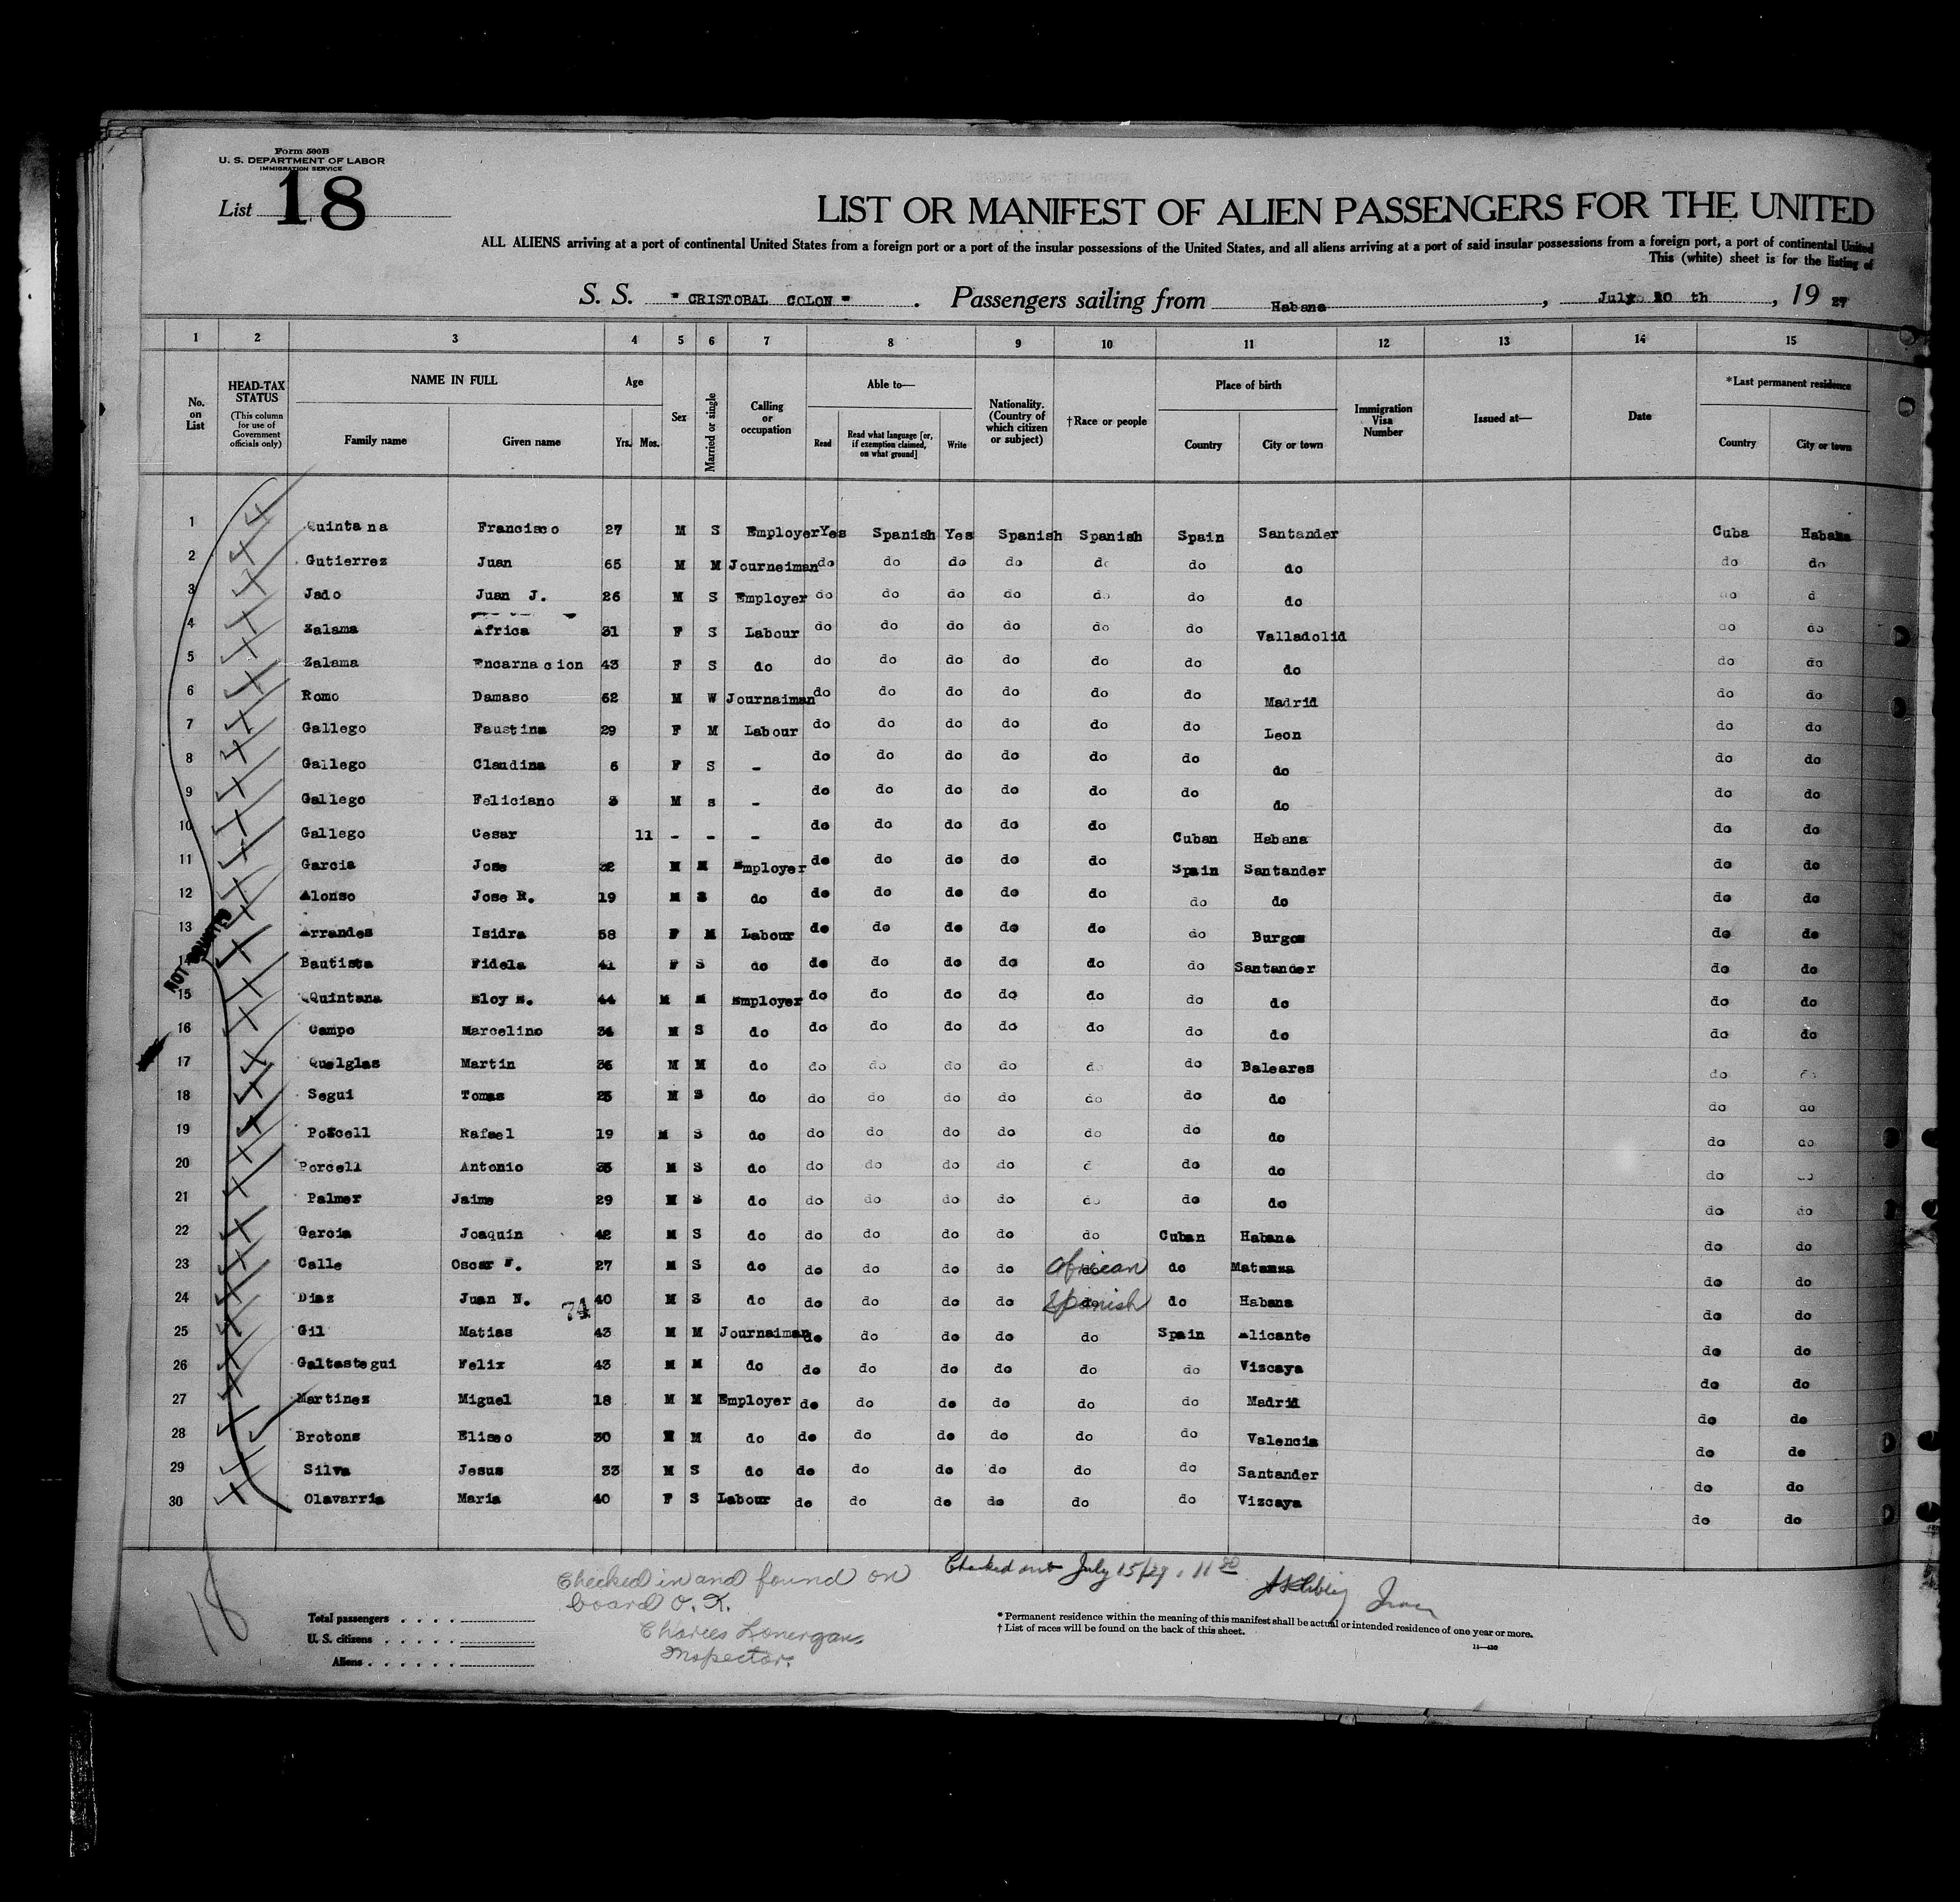 Form 500B
U. S. DEPARTMENT OF LABOR
IMMIGRATION SERVICE
List 18
LIST OR MANIFEST OF ALIEN PASSENGERS FOR THE UNITED
ALL ALIENS arriving at a port of continental United States from a foreign port or a port of the insular possessions of the United States, and all aliens arriving at a port of said insular possessions from a foreign port, a port of continental United
This (white) sheet is for the listing of
S. S. "CRISTOBAL COLON". Passengers sailing from Habana, July 10 th, 19 27
1 2 3 4 5 6 7 8 9 10 11 12 13 14 15
No. on List
HEAD-TAX STATUS (This column for use of Government officials only)
NAME IN FULL Family name Given name
Age Yrs. Mos.
Sex
Married or single
Calling or occupation
Able to— Read Read what language [or, if exemption claimed, on what ground] Write
Nationality. (Country of which citizen or subject)
†Race or people
Place of birth Country City or town
Immigration Visa Number
Issued at—
Date
*Last permanent residence Country City or town
1 Quintana Francisco 27 M S Employer Yes Spanish Yes Spanish Spanish Spain Santander Cuba Habana
2 Gutierrez Juan 65 M M Journeiman do do do do do do do do do
3 Jado Juan J. 26 M S Employer do do do do do do do do d
4 Zalama Africa 31 F S Labour do do do do do do Valladolid do do
5 Zalama Encarnacion 43 F S do do do do do do do do do do
6 Romo Damaso 62 M W Journaiman do do do do do do Madrid do do
7 Gallego Faustina 29 F M Labour do do do do do do Leon do do
8 Gallego Claudina 6 F S - do do do do do do do do do
9 Gallego Feliciano 3 M s - do do do do do do do do do
10 Gallego Cesar 11 - - - do do do do do Cuban Habana do do
11 Garcia Jose 32 M M Employer do do do do do Spain Santander do do
12 Alonso Jose R. 19 M S do do do do do do do do do do
13 Arrandes Isidra 58 F M Labour do do do do do do Burgos do do
14 Bautista Fidela 41 F S do do do do do do do Santander do do
15 QQuintana Eloy M. 44 M M Employer do do do do do do do do do
16 Campo Marcelino 34 M S do do do do do do do do do do
17 Quelglas Martin 35 M M do do do do do do do Baleares do do
18 Segui Tomas 25 M S do do do do do do do do do do
19 Porcell Rafael 19 M S do do do do do do do do do do
20 Porcell Antonio 35 M S do do do do do d do do do do
21 Palmer Jaime 29 M S do do do do do do do do do do
22 Garcia Joaquin 42 M S do do do do do do Cuban Habana do do
23 Calle Oscar F. 27 M S do do do do do African do Matanza do do
24 Diaz Juan N. 74 40 M S do do do do do Spanish do Habana do do
25 Gil Matias 43 M M Journaiman do do do do do Spain Alicante do do
26 Galtastegui Felix 43 M M do do do do do do do Vizcaya do do
27 Martinez Miguel 18 M M Employer do do do do do do Madrid do do
28 Brotons Eliseo 30 M M do do do do do do do Valencia do do
29 Silva Jesus 33 M S do do do do do do do Santander do do
30 Olavarria Maria 40 F S Labour do do do do do do Vizcaya do do
NOT COUNTED
18
Checked in and found on
board O. K.
Charles Lonergan
Inspector.
Checked out July 15/27, 11
Total passengers
U. S. citizens
Aliens
* Permanent residence within the meaning of this manifest shall be actual or intended residence of one year or more.
† List of races will be found on the back of this sheet.